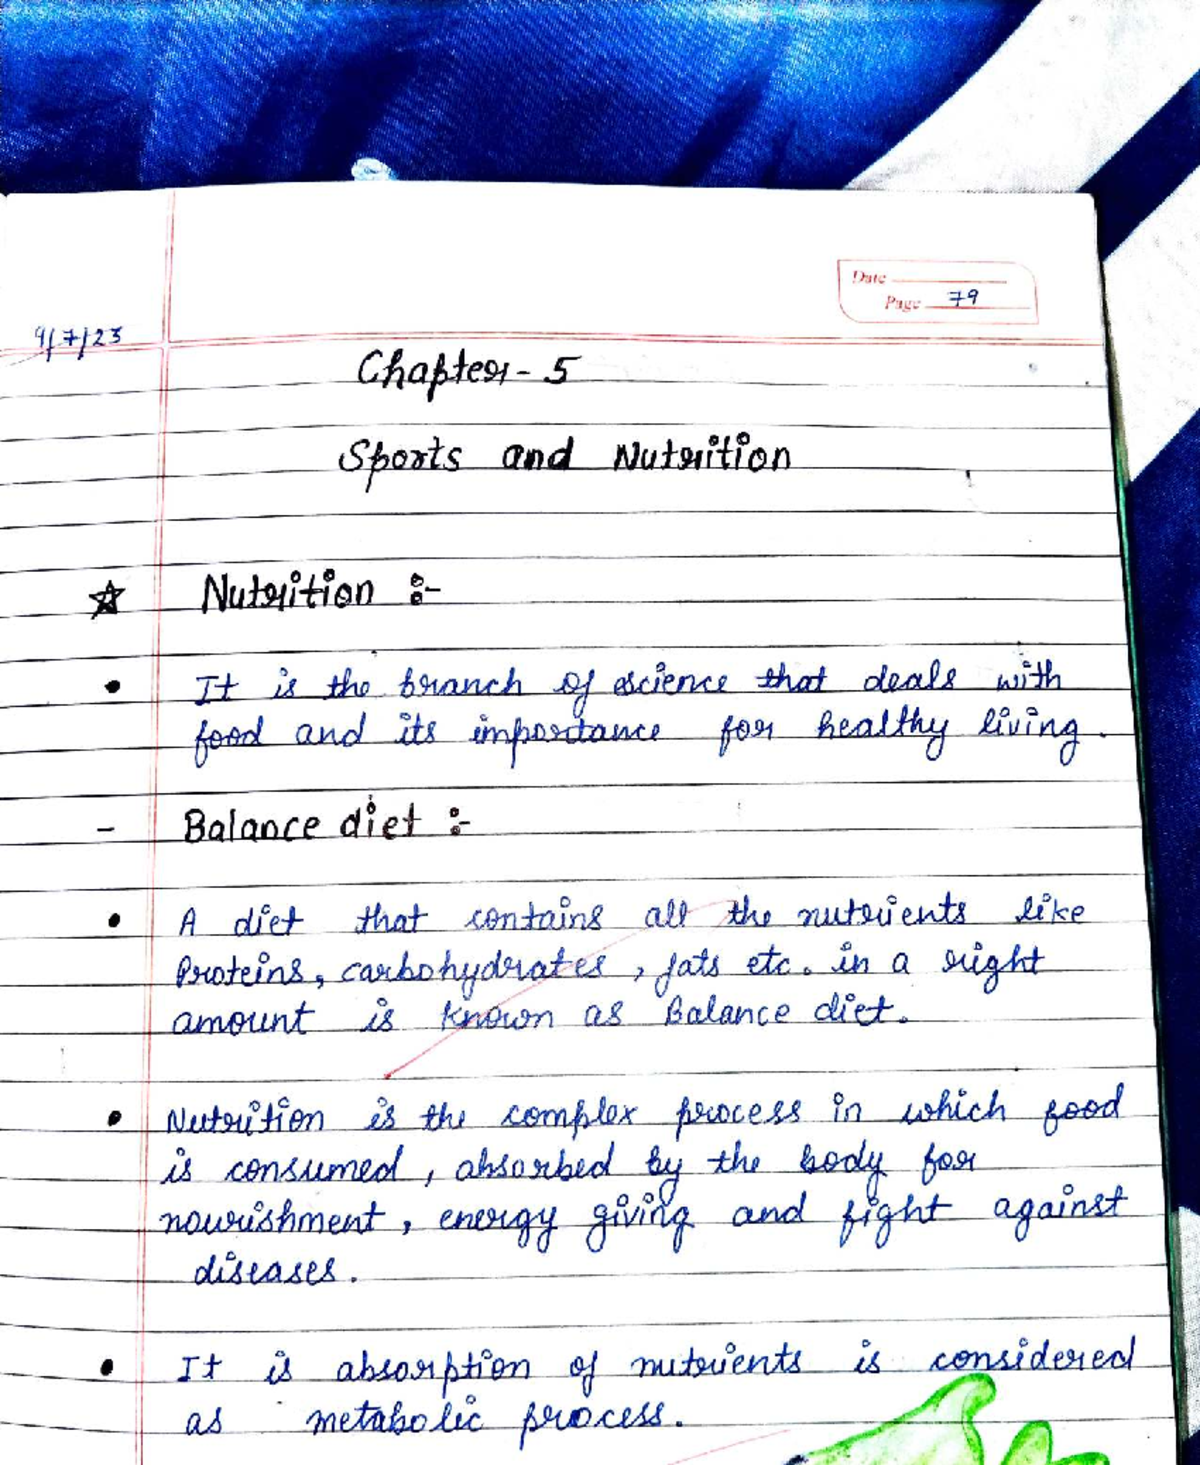 Date
Page 79
9/7/23
Chapter - 5
Sports and Nutrition
Nutrition :-
• It is the branch of science that deals with
food and its importance for healthy living.
- Balance diet :-
• A diet that contains all the nutrients like
Proteins, carbohydrates, fats etc. in a right
amount is known as Balance diet.
• Nutrition is the complex process in which food
is consumed, absorbed by the body for
nourishment, energy giving and fight against
diseases.
• It is absorption of nutrients is considered
as metabolic process.